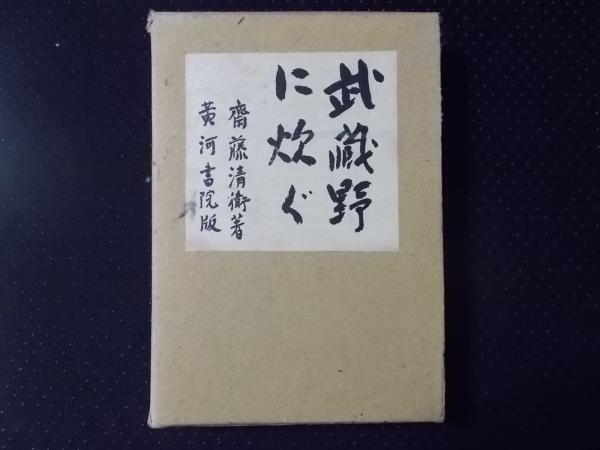 武蔵野
に炊ぐ
齋藤清衞著
黄河書院版